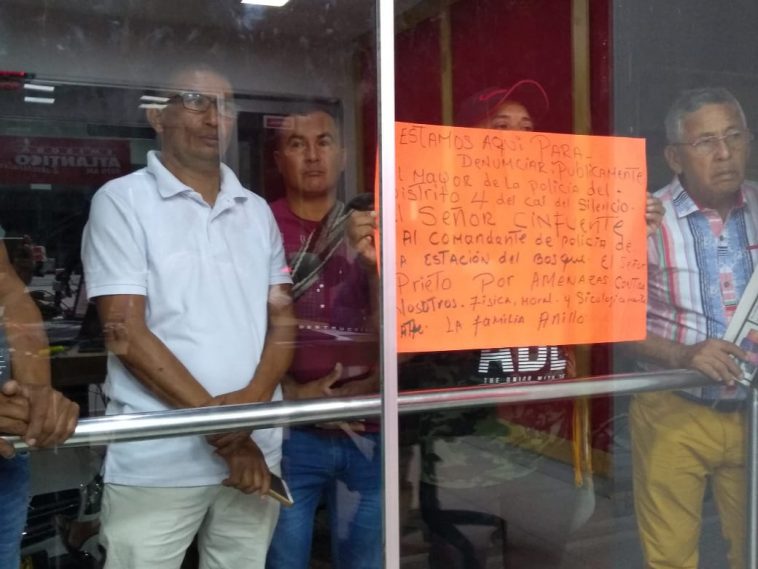 EMISORA
ATLANTICO
ESTAMOS AQUI PARA
DENUMCIAR. PUBLICAMENTE
El MAYOR de la policia del.
DISTRITO 4 del CAI del Silencio.
El SEÑOR CINFUENTE
Al Comandante de policia de
LA ESTACIÓN del Bosque. El Señor
PRIETO POR AMENAZAS CONTRA
NOSOTROS. Fisica, Moral. y
ATTE. LA Familia Anillo
THE